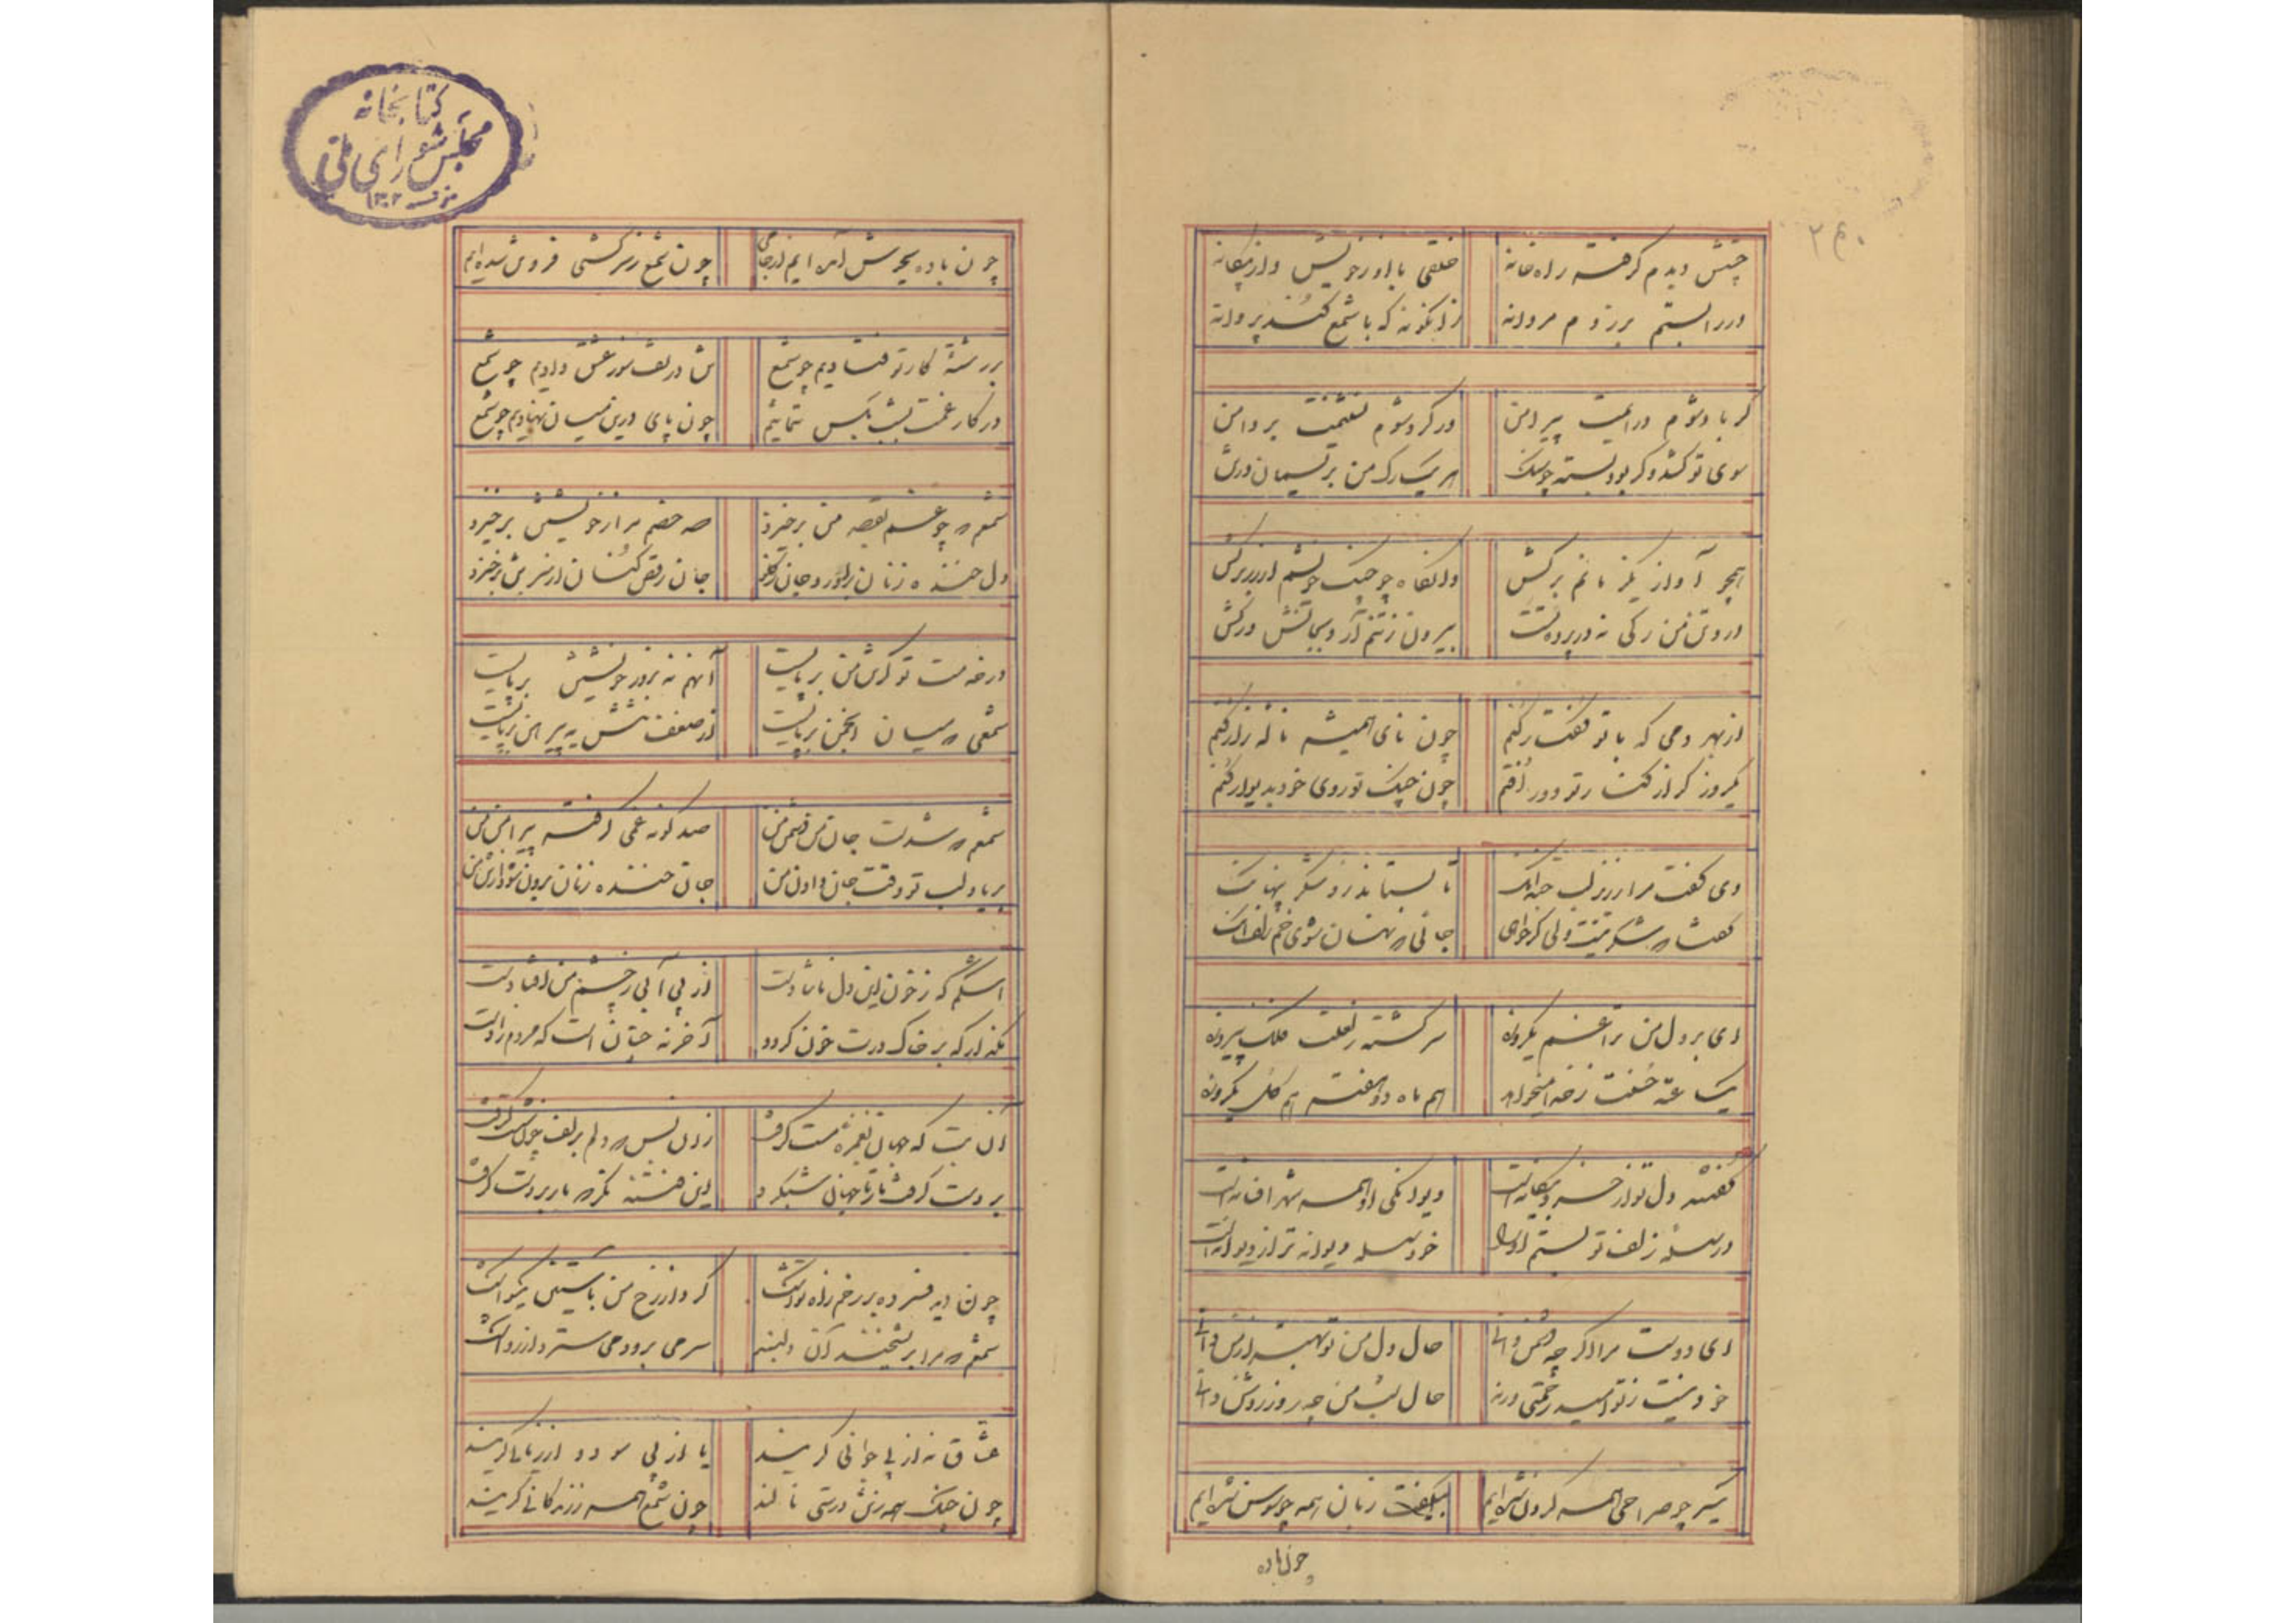 ۲۶۰
چشش دیدم گرفته راه خانه خلقی با او ز خویش و از بیگانه
در را بستم برزدم مردانه زانگونه که با شمع کند پروانه
گر باد شوم درآیمت پیرامن ور گرد شوم نشینمت بر دامن
سوی تو کشد وگر بود بسته چو سنگ هر یک رگ من بر
همچو آواز یکز مانم برکش وانگاه چو چنگ خویشم اندر برکش
در تن من رگی نه در پرده تست بیرون ز تنم آر و بجانش درکش
از بهر دمی که با تو گفتار کنم چون نای همیشه ناله زار کنم
یکروز گر از کنار تو دور افتم چون چنگ تو روی خود بدیوار کنم
دی گفت مرا ز زیر لب تا بستاند ز من شکر پنهانک
گفتا شکرینیست ولی گر خواهی جانی نهان سوی خم زلفانک
ای بر دل من ترا غم یکروزه سرگشته ز لعلت فلک پیروزه
یک ساعته خفت ز خدا میخواهد هم ماه دو هفته هم گل یکروزه
گفتند دل تو از خرد بیگانه است دیوانگی او همه شهر افسانه است
در سلسله زلف تو بستم او را خود سلسله دیوانه تر از دیوانه است
ای دوست مرا اگر چه دشمن دانی حال دل من تو بهتر از من دانی
خود نیست ز تو امید رحمتی ورنه حال شب من چو روز روشن دانی
یکسر چو صراحی همه گردن شده ایم بگرفت زبان همه چو سوسن شده ایم
چون باده
کتابخانه
مجلس شورای ملی
۱۳۰۲
چون باده بجوش آمده ایم از خامی چون شمع ز سرکشی فروتن شده ایم
بر رشته کار تو فتادیم چو شمع تن در تف سوز عشق دادیم چو شمع
در کار غمت بشب بکس ننمائیم چون پای درین میان نهادیم چو شمع
شمعم چو غم بقصد من برخیزد صد خصم مرا ز خویشتن برخیزد
دل خنده زنان جان رقص کنان از سر تن برخیزد
در خدمت تو گر تن من برپایست آنهم نه بزور خویشتن برپایست
شمعی میان انجمن برپایست از ضعف تنش به پیرهن برپایست
شمعم شدست جان من دشمن من صد گونه غمی گرفته پیرامن من
بر یاد لب تو وقت جان دادن من جان خنده زنان برون شود از تن من
اشکم که ز خون این دل ناشادست از بی آبی ز چشم من افتادست
مگذار که بر خاک درت خون گردد آخر نه چنان است که مردم زادست
آن بت که جهان بغمزه مست گرفت زان پس دلم بزلف چون شست گرفت
بر دست گرفت باز تا جهان شکرد این فتنه نگر باز بر دست گرفت
چون دید فسرده بر رخم راه سرشک کرد از رخ من بآستین یکسو اشک
شمعم مرا بر شخند آن دلبند سر می برد و می سترد از رو اشک
عشاق نه از پی جوانی گریند یا از پی سود و از زیانی گریند
چون چنگ همه ز تندرستی نالند چون شمع همه ز زندگانی گریند